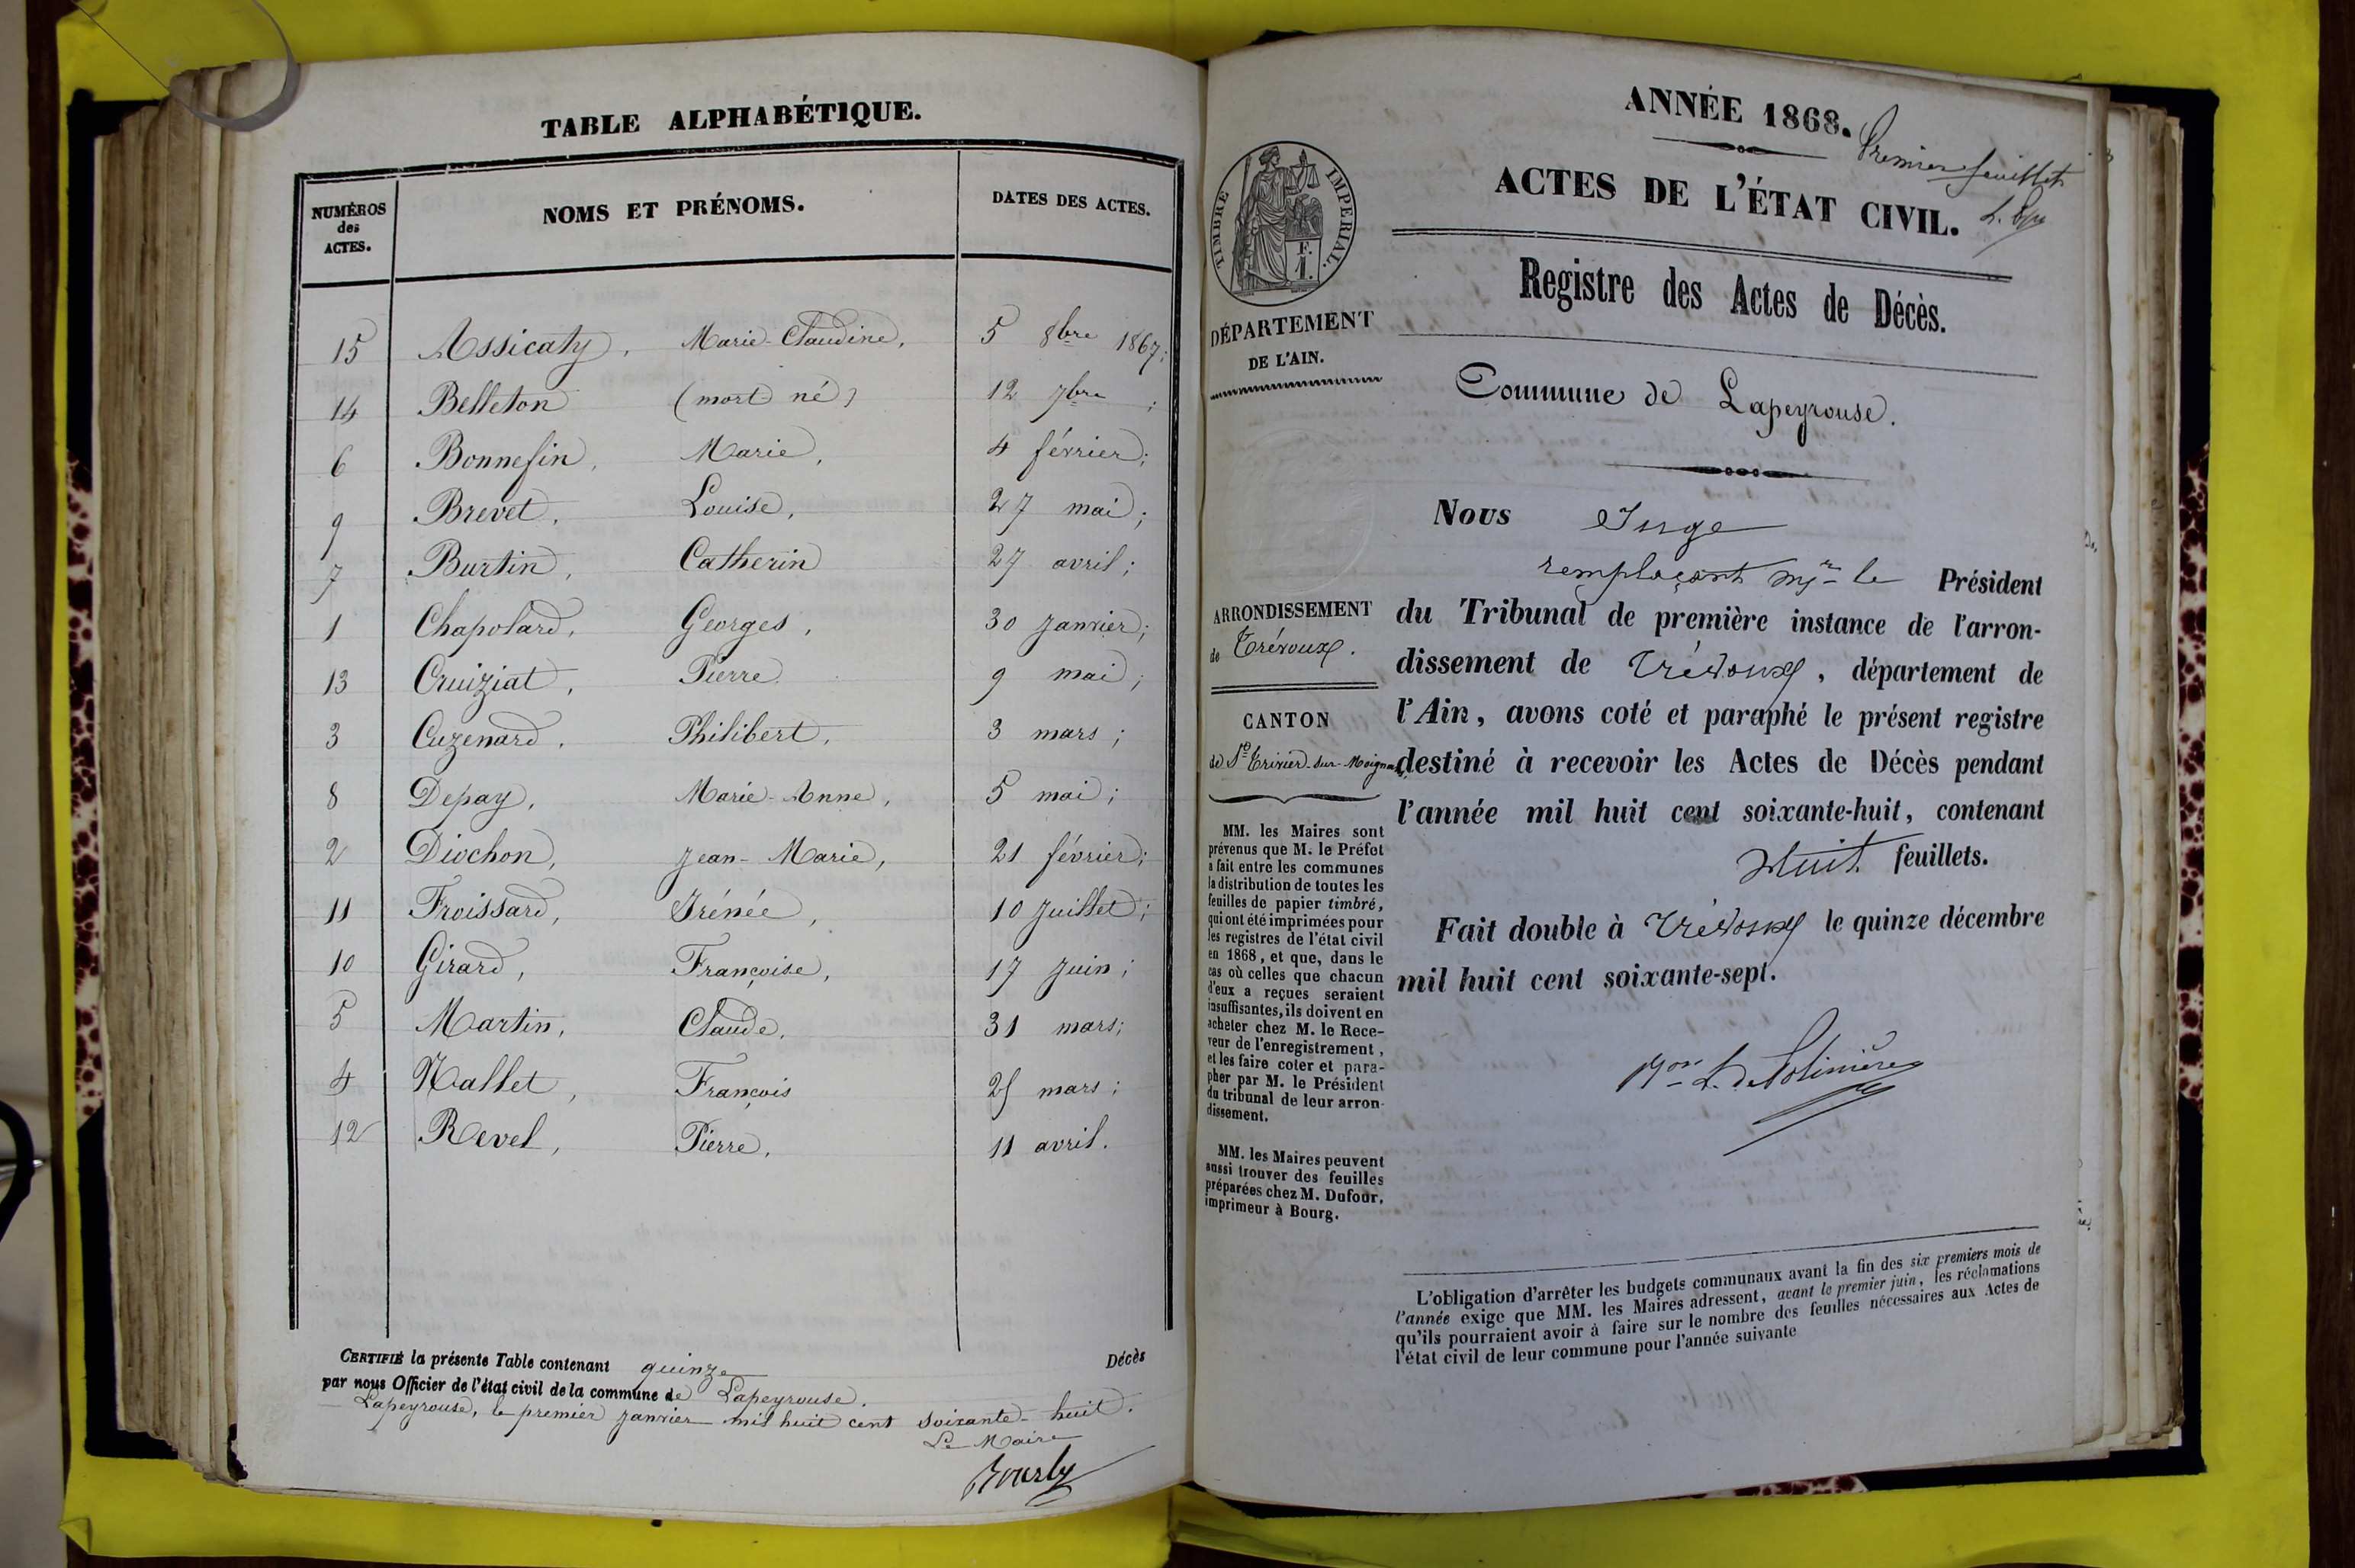 TABLE ALPHABÉTIQUE.
NUMÉROS
des
ACTES.
NOMS ET PRÉNOMS.
DATES DES ACTES.
15 Assicaty, Marie-Claudine, 5 8bre 1867;
14 Belleton (mort né) 12 7bre ;
6 Bonnefin, Marie, 4 février;
9 Brevet, Louise, 27 mai;
7 Burtin, Catherin 27 avril;
1 Chapolard, Georges, 30 Janvier;
13 Cruiziat, Pierre 9 mai;
3 Cuzenard, Philibert, 3 mars;
8 Depay, Marie-Anne, 5 mai;
2 Diochon, Jean-Marie, 21 février;
11 Froissard, Irénée, 10 Juillet;
10 Girard, Françoise, 17 Juin;
5 Martin, Claude, 31 mars;
4 Nallet, François mars;
12 Revel, Pierre, 11 avril.
CERTIFIÉ la présente Table contenant quinze Décès
par nous Officier de l'état civil de la commune de Lapeyrouse.
Lapeyrouse, le premier Janvier mil huit cent soixante-huit.
Le Maire
ANNÉE 1868.
Premier feuillet
ACTES DE L'ÉTAT CIVIL.
TIMBRE IMPERIAL.
F.
1.
Registre des Actes de Décès.
DÉPARTEMENT
DE L'AIN.
Commune de Lapeyrouse.
Nous Juge
remplaçant Mr le Président
ARRONDISSEMENT
de Trévoux.
du Tribunal de première instance de l'arron-
dissement de Trévoux, département de
l'Ain, avons coté et paraphé le présent registre
destiné à recevoir les Actes de Décès pendant
l'année mil huit cent soixante-huit, contenant
Huit feuillets.
CANTON
de St Trivier-sur-Moignans,
MM. les Maires sont
prévenus que M. le Préfet
a fait entre les communes
la distribution de toutes les
feuilles de papier timbré,
qui ont été imprimées pour
les registres de l'état civil
en 1868, et que, dans le
cas où celles que chacun
d'eux a reçues seraient
insuffisantes, ils doivent en
acheter chez M. le Rece-
veur de l'enregistrement,
et les faire coter et para-
pher par M. le Président
du tribunal de leur arron-
dissement.
MM. les Maires peuvent
aussi trouver des feuilles
préparées chez M. Dufour,
imprimeur à Bourg.
Fait double à Trévoux le quinze décembre
mil huit cent soixante-sept.
L'obligation d'arrêter les budgets communaux avant la fin des six premiers mois de
l'année exige que MM. les Maires adressent, avant le premier juin, les réclamations
qu'ils pourraient avoir à faire sur le nombre des feuilles nécessaires aux Actes de
l'état civil de leur commune pour l'année suivante